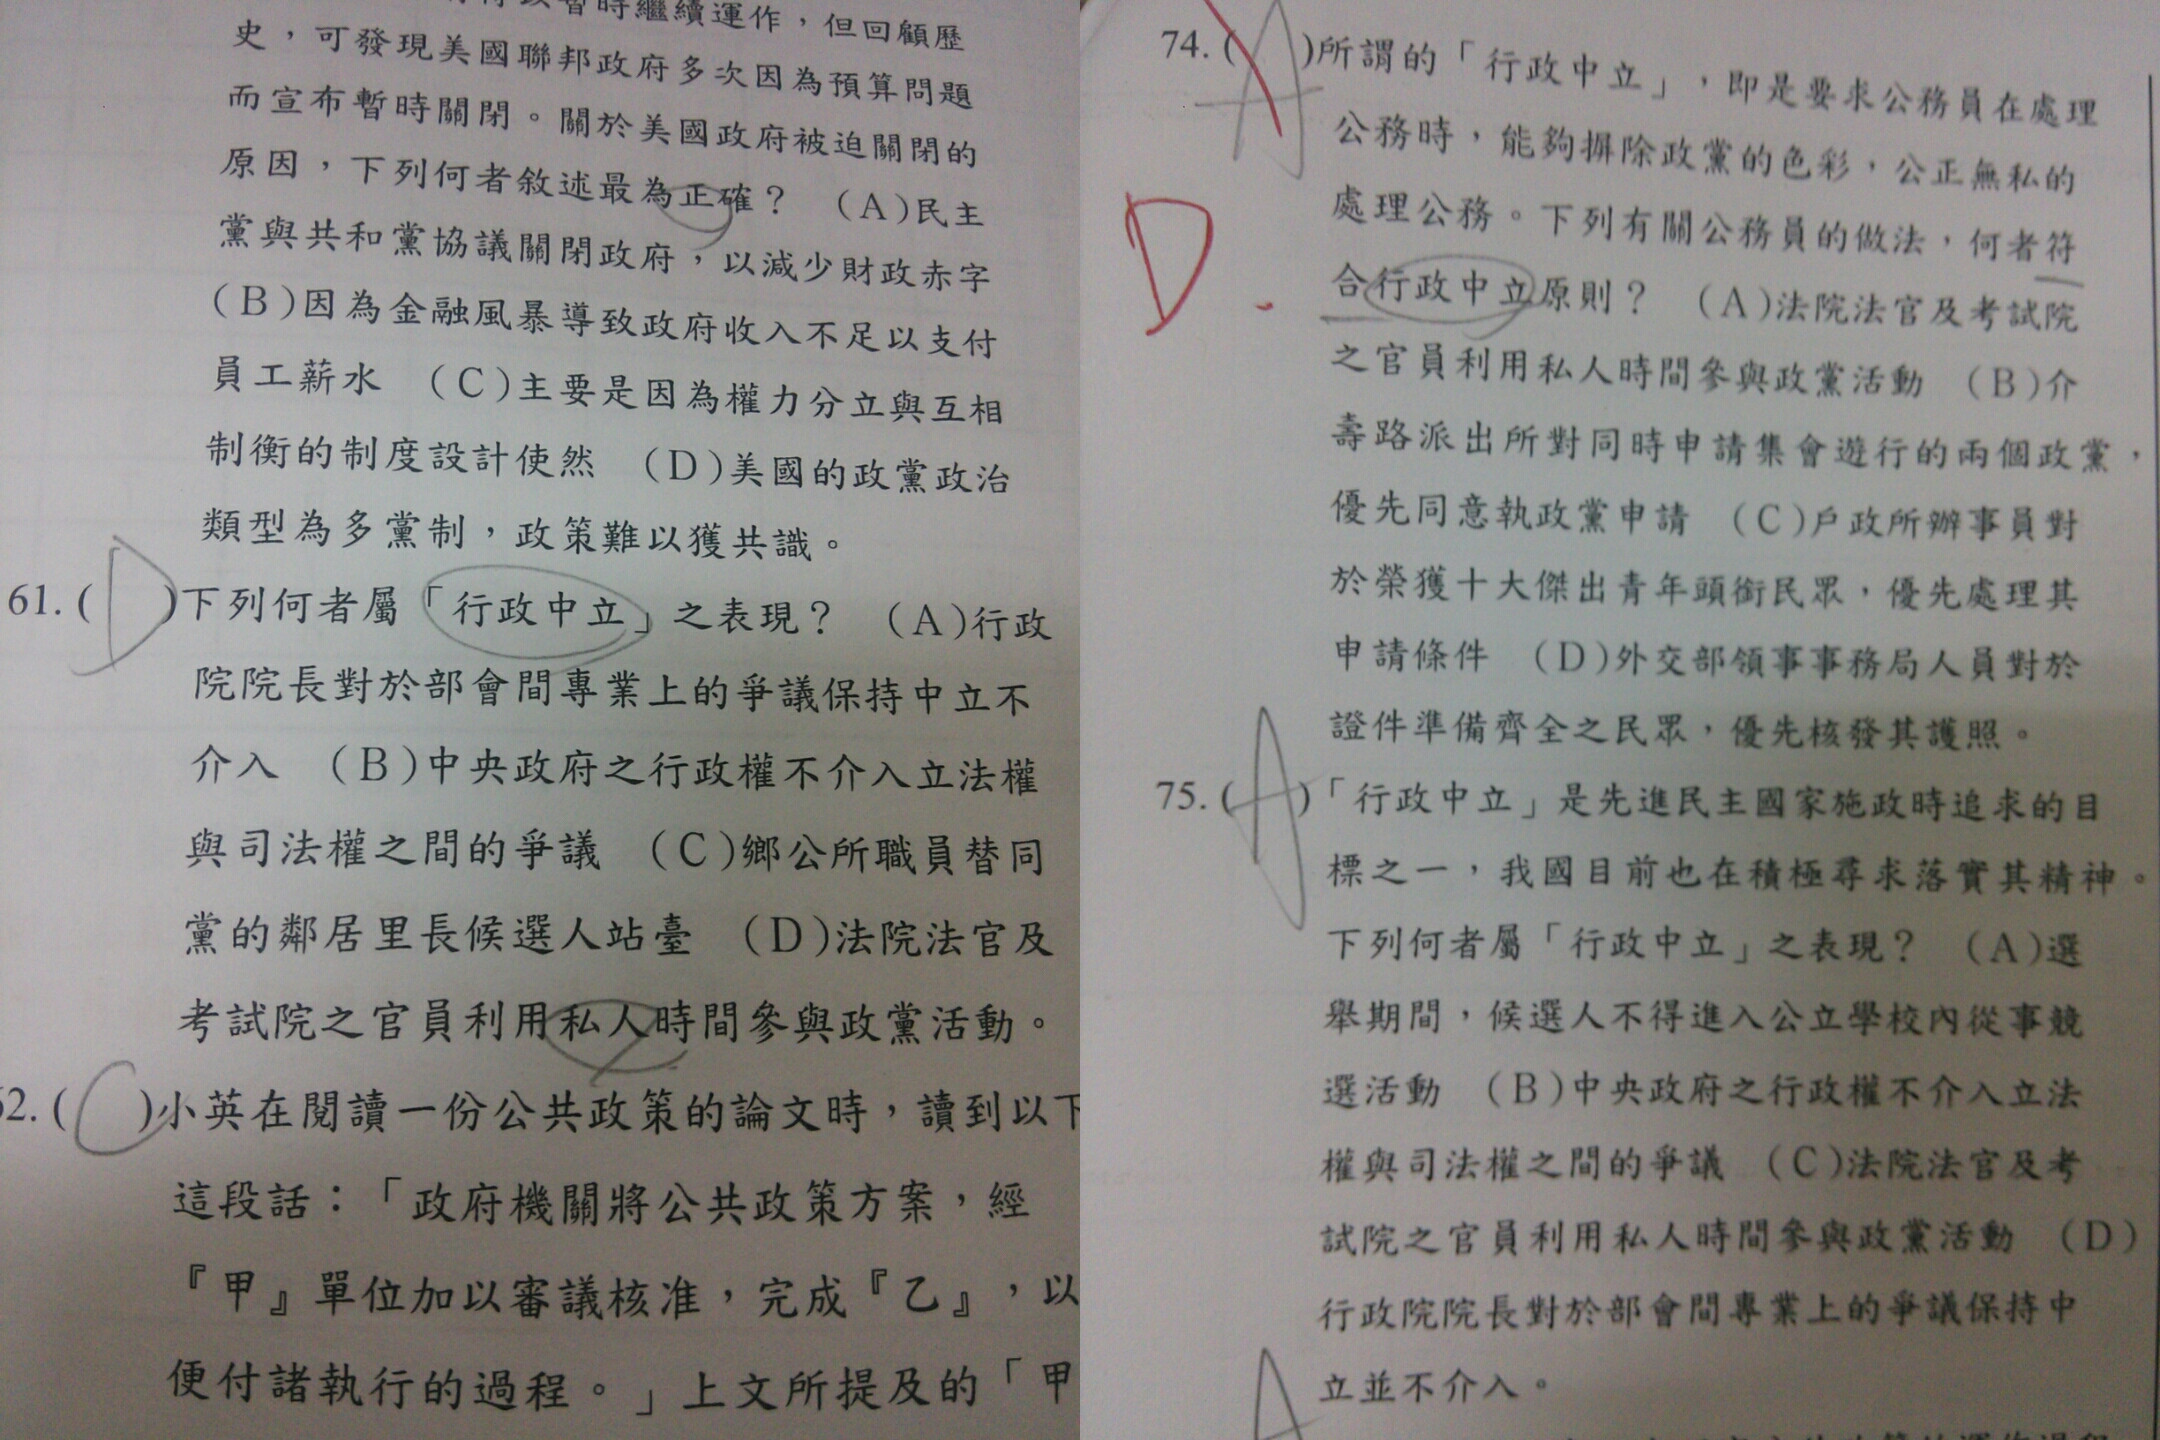 暫時繼續運作，但回顧歷
史，可發現美國聯邦政府多次因為預算問題
而宣布暫時關閉。關於美國政府被迫關閉的
原因，下列何者敘述最為正確？ (A)民主
黨與共和黨協議關閉政府，以減少財政赤字
(B)因為金融風暴導致政府收入不足以支付
員工薪水 (C)主要是因為權力分立與互相
制衡的制度設計使然 (D)美國的政黨政治
類型為多黨制，政策難以獲共識。
61.( D )下列何者屬「行政中立」之表現？ (A)行政
院院長對於部會間專業上的爭議保持中立不
介入 (B)中央政府之行政權不介入立法權
與司法權之間的爭議 (C)鄉公所職員替同
黨的鄰居里長候選人站臺 (D)法院法官及
考試院之官員利用私人時間參與政黨活動。
62.( C )小英在閱讀一份公共政策的論文時，讀到以下
這段話：「政府機關將公共政策方案，經
『甲』單位加以審議核准，完成『乙』，以
便付諸執行的過程。」上文所提及的「甲
74.( A )所謂的「行政中立」，即是要求公務員在處理
公務時，能夠摒除政黨的色彩，公正無私的
D.
處理公務。下列有關公務員的做法，何者符
合行政中立原則？ (A)法院法官及考試院
之官員利用私人時間參與政黨活動 (B)介
壽路派出所對同時申請集會遊行的兩個政黨，
優先同意執政黨申請 (C)戶政所辦事員對
於榮獲十大傑出青年頭銜民眾，優先處理其
申請條件 (D)外交部領事事務局人員對於
證件準備齊全之民眾，優先核發其護照。
75.( A )「行政中立」是先進民主國家施政時追求的目
標之一，我國目前也在積極尋求落實其精神。
下列何者屬「行政中立」之表現？ (A)選
舉期間，候選人不得進入公立學校內從事競
選活動 (B)中央政府之行政權不介入立法
權與司法權之間的爭議 (C)法院法官及考
試院之官員利用私人時間參與政黨活動 (D)
行政院院長對於部會間專業上的爭議保持中
立並不介入。
A